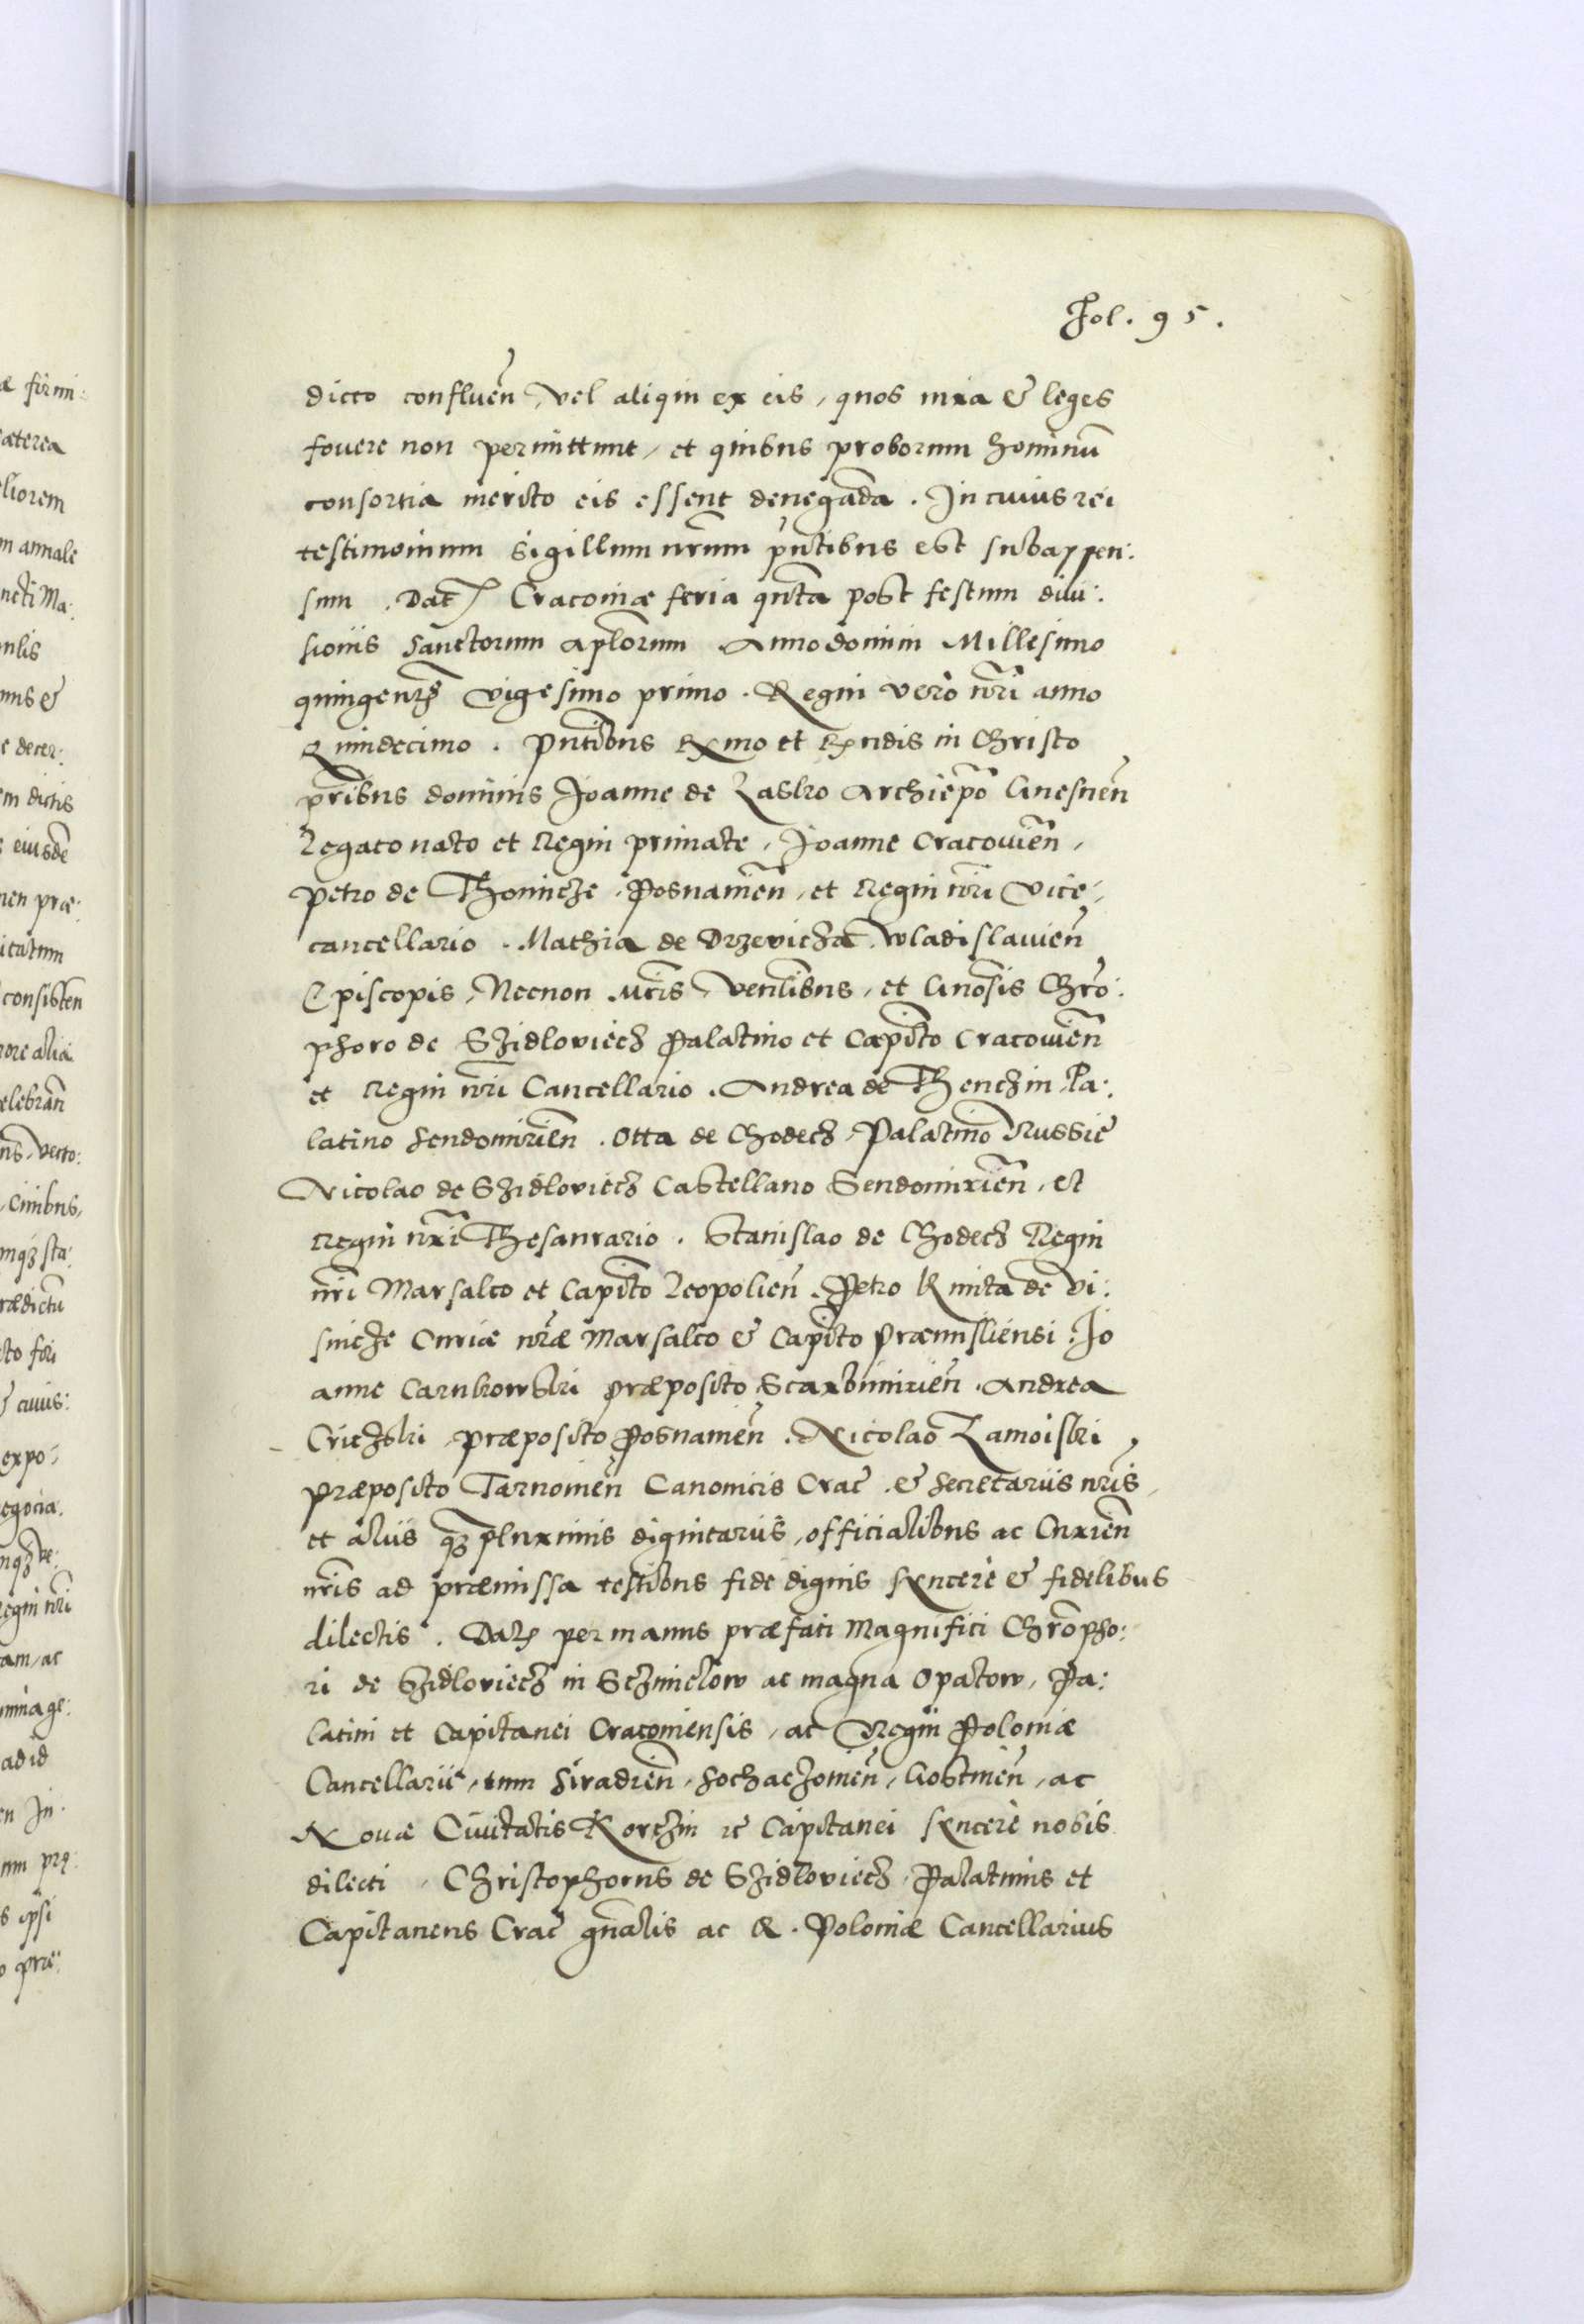 Fol. 95.
dicto confluen̄, vel aliqui ex eis, quos iura & leges
fouere non permittunt, et quibus proborum hominū
consortia merito eis essent denegāda. In cuius rei
testimonium sigillum nr̄um pn̄tibus est subappen:
sum. Dat Cracouiæ feria qūta post festum diui:
sionis sanctorum apl̄orum Anno domini Millesimo
quingen̄ vigesimo primo. Regni verò nr̄i anno
Quindecimo. Pn̄tibus Rx̄mo et Rx̄ndis in Christo
pr̄ibus dominis Joanne de Lasko Archiep̄o Gnesnen̄
Legato nato et Regni primate, Joanne Cracouien̄,
Petro de Thomicze Posnanien̄, et Regni nr̄i Vice,
cancellario. Mathia de Drzevicza Wladislauien̄
Episcopis, Necnon M̄cis, Ven̄libus, et Gn̄osis Chr̄o:
phoro de Szidloviecz Palatino et Capit̄o Cracouien̄
et Regni nr̄i Cancellario. Andrea de Thenczin Pa:
latino Sendomirien̄. Otta de Chodecz Palatino Russiè
Nicolao de Szidloviecz Castellano Sendomirien̄, et
Regni nr̄i Thesaurario. Stanislao de Chodecz Regni
nr̄i Marsalco et Capit̄o Leopolien̄. Petro Kmita de Vi:
snicze Curiæ nr̄æ Marsalco & Capit̄o Præmisliensi. Jo
anne Carnkowski præposito Scarbimirien̄. Andrea
Criczski præposito Posnanien̄. Nicolao Zamoiski
præposito Tarnouien̄ Canonicis Crac̄. & Secretariis nr̄is,
et aliis q₃ plurimis dignitariis, officialibus ac Curien̄
nr̄is ad præmissa testibus fide dignis syncerè & fidelibus
dilectis. Dat per manus præfati Magnifici Chr̄opho:
ri de Szidloviecz in Sczmielow ac magna Opatow, Pa:
latini et Capitanei Cracouiensis, ac Regni Poloniæ
Cancellarii, tum Siradien̄, Sochaczouien̄, Gostinen̄, ac
Nouæ Ciuitatis Korczin &c Capitanei syncerè nobis
dilecti. Christophorus de Szidloviecz Palatinus et
Capitaneus Crac̄ gn̄alis ac R. Poloniæ Cancellarius